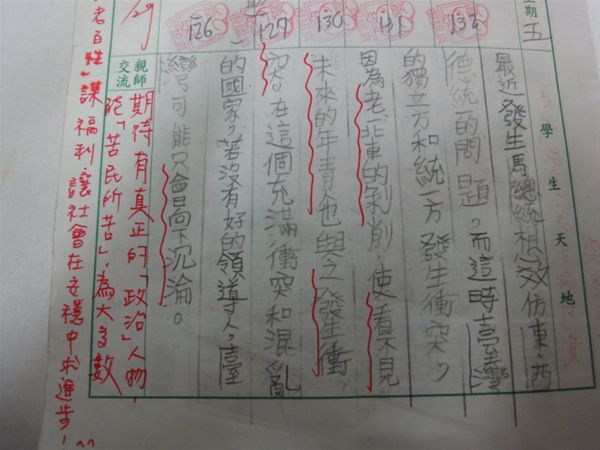 星期五
132
131
130
129
126
學生天地
最近發生馬總統想效仿東、西
德統一的問題，而這時臺灣
的獨立方和統一方發生衝突，
因為老一輩的剝削，使看不見
未來的年青也與之發生衝
突。在這個充滿衝突和混亂
的國家，若沒有好的領導人，臺
灣可能只會日向下沉淪。
親師交流
期待有真正的「政治」人物，
能「苦民所苦」，為大多數
老百姓」謀福利讓社會在安穩中求進步！^^
/29